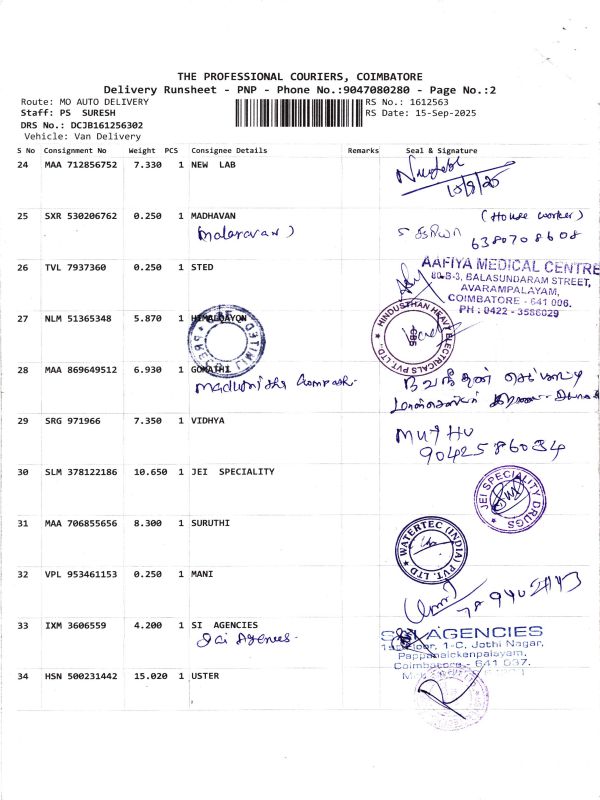 THE PROFESSIONAL COURIERS, COIMBATORE
Delivery Runsheet - PNP - Phone No.:9047080280 - Page No.:2
Route: MO AUTO DELIVERY RS No.: 1612563
Staff: PS SURESH RS Date: 15-Sep-2025
DRS No.: DCJB161256302
Vehicle: Van Delivery
S No Consignment No Weight PCS Consignee Details Remarks Seal & Signature
24 MAA 712856752 7.330 1 NEW LAB
15/9/25
25 SXR 530206762 0.250 1 MADHAVAN (House worker)
6380708608
26 TVL 7937360 0.250 1 STED AAFIYA MEDICAL CENTRE
80-B-3, BALASUNDARAM STREET,
AVARAMPALAYAM,
COIMBATORE - 641 006.
PH : 0422 - 3586029
27 NLM 51365348 5.870 1 HIMALQAYON HINDUSTHAN HEAVY ELECTRICALS PVT. LTD., CBS
28 MAA 869649512 6.930 1 GOMATHI
29 SRG 971966 7.350 1 VIDHYA MUTHU
9042586034
30 SLM 378122186 10.650 1 JEI SPECIALITY JEI SPECIALITY DRUGS
31 MAA 706855656 8.300 1 SURUTHI WATERTEC (INDIA) PVT. LTD
32 VPL 953461153 0.250 1 MANI
33 IXM 3606559 4.200 1 SI AGENCIES AGENCIES
Sai Agencies. 1st Floor, 1-C, Jothi Nagar,
Pappanaickenpalayam,
Coimbatore - 641 037.
34 HSN 500231442 15.020 1 USTER